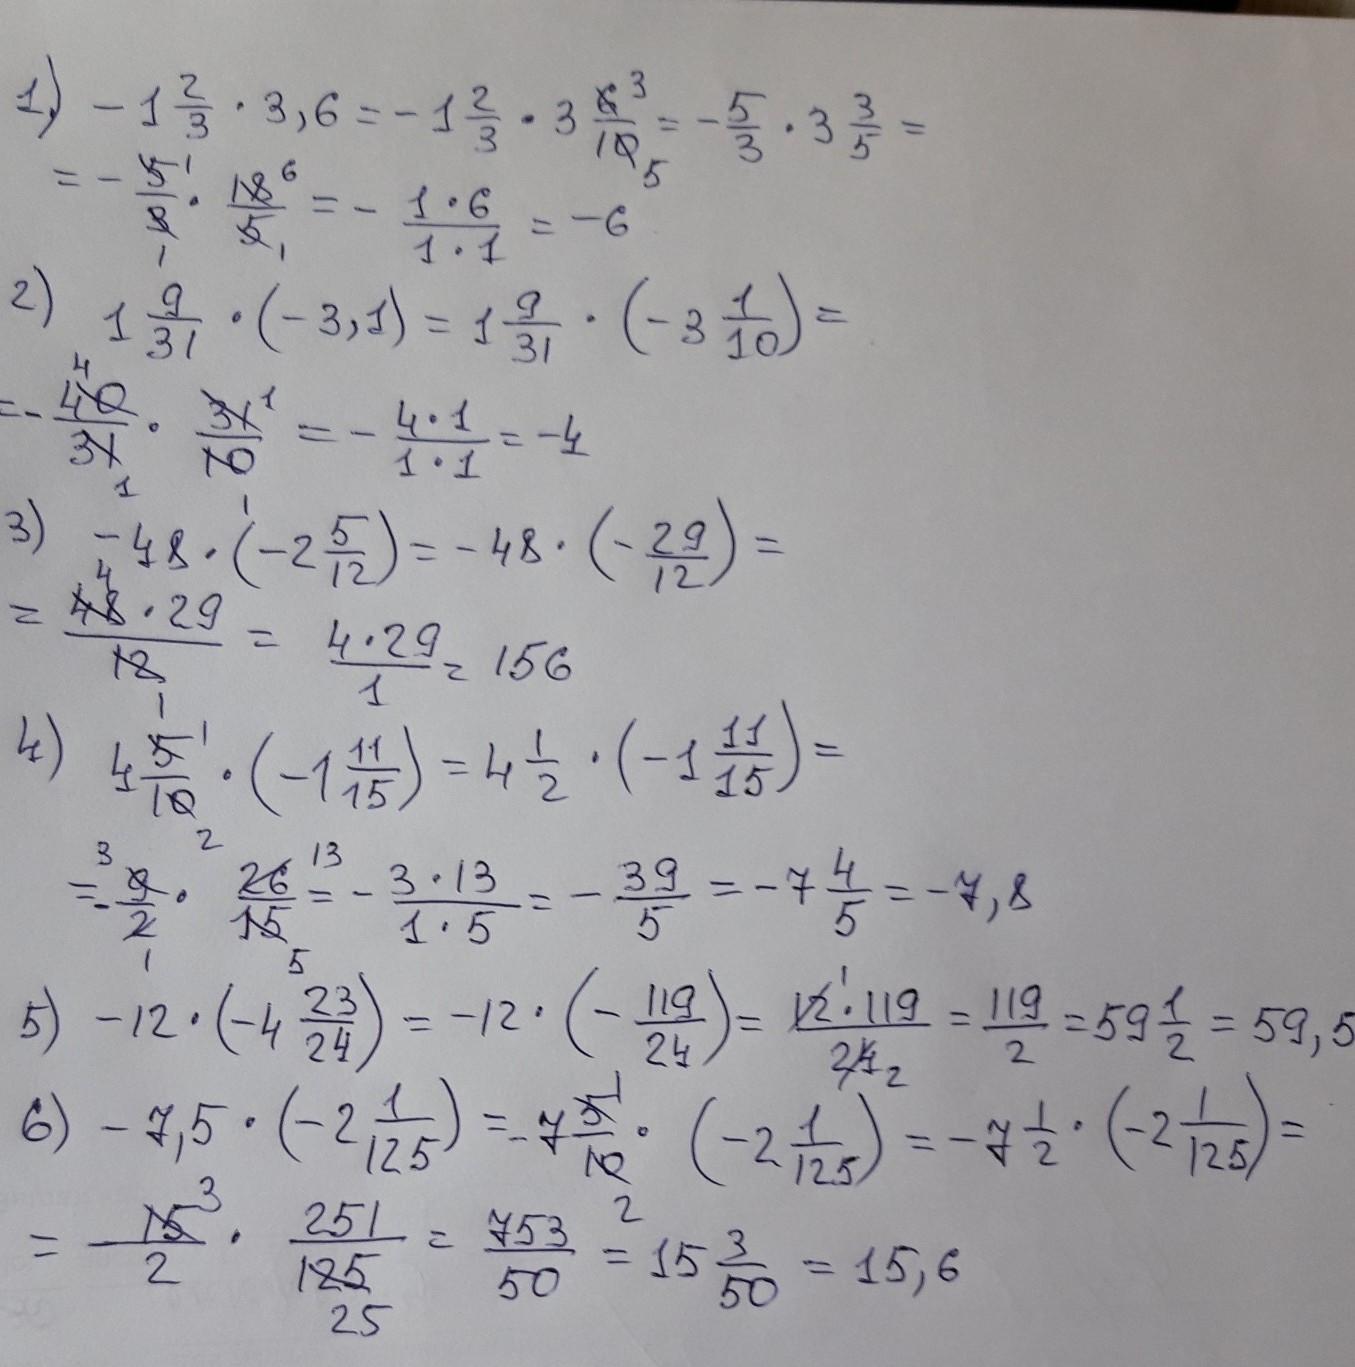 1) -1 2/3 · 3,6 = -1 2/3 · 3 6/10 3 5 = -5/3 · 3 3/5 =
= -5/3 1 1 · 18/5 6 1 = - 1·6/1·1 = -6
2) 1 9/31 · (-3,1) = 1 9/31 · (-3 1/10) =
= - 40/31 4 1 · 31/10 1 1 = - 4·1/1·1 = -4
3) -48 · (-2 5/12) = -48 · (-29/12) =
= 48·29/12 4 1 = 4·29/1 = 156
4) 4 5/10 1 2 · (-1 11/15) = 4 1/2 · (-1 11/15) =
= - 9/2 3 1 · 26/15 13 5 = - 3·13/1·5 = - 39/5 = -7 4/5 = -7,8
5) -12 · (-4 23/24) = -12 · (- 119/24) = 12·119/24 1 2 = 119/2 = 59 1/2 = 59,5
6) -7,5 · (-2 1/125) = -7 5/10 1 2 · (-2 1/125) = -7 1/2 · (-2 1/125) =
= - 15/2 3 · 251/125 25 = 753/50 = 15 3/50 = 15,6